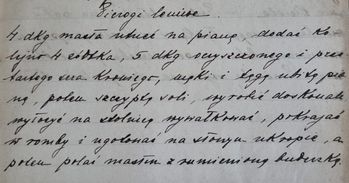 Pierogi leniwe.
4 dkg masła utrzeć na pianę, dodać ko-
lejno 4 żółtka, 5 dkg osuszonego i prze-
tartego sera krowiego, mąki i tęgą ubitą pia-
nę, potem szczyptę soli, wyrobić doskonale
wyłożyć na stolnicę wywałkować, pokrajać
w romby i ugotować na słonym ukropie, a
potem polać masłem z rumienioną bułeczką.